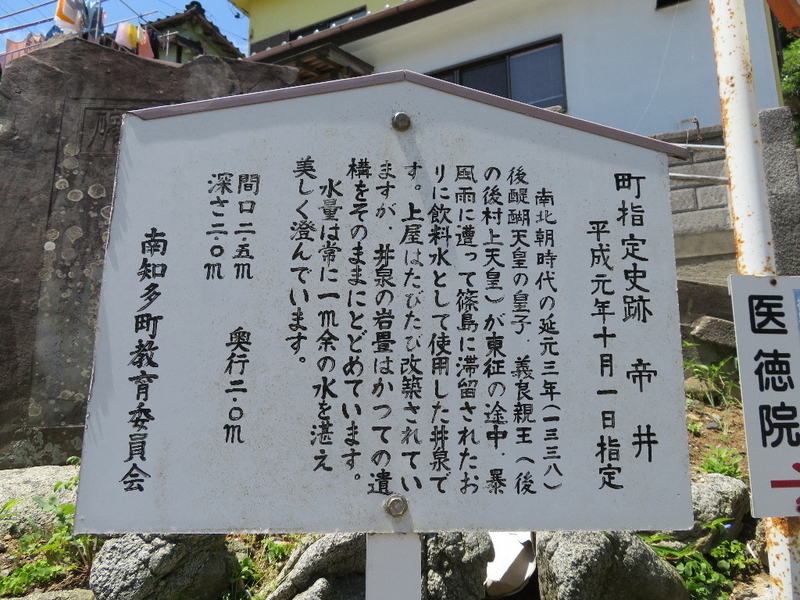 町指定史跡 帝井
平成元年十月一日指定
南北朝時代の延元三年(一三三八)
後醍醐天皇の皇子、義良親王(後
の後村上天皇)が東征の途中、暴
風雨に遭って篠島に滞留されたお
りに飲料水として使用した井泉で
す。上屋はたびたび改築されてい
ますが、井泉の岩畳はかつての遺
構をそのままにとどめています。
水量は常に一m余の水を湛え
美しく澄んでいます。
間口二・五m 奥行二・〇m
深さ二・〇m
南知多町教育委員会
医徳院